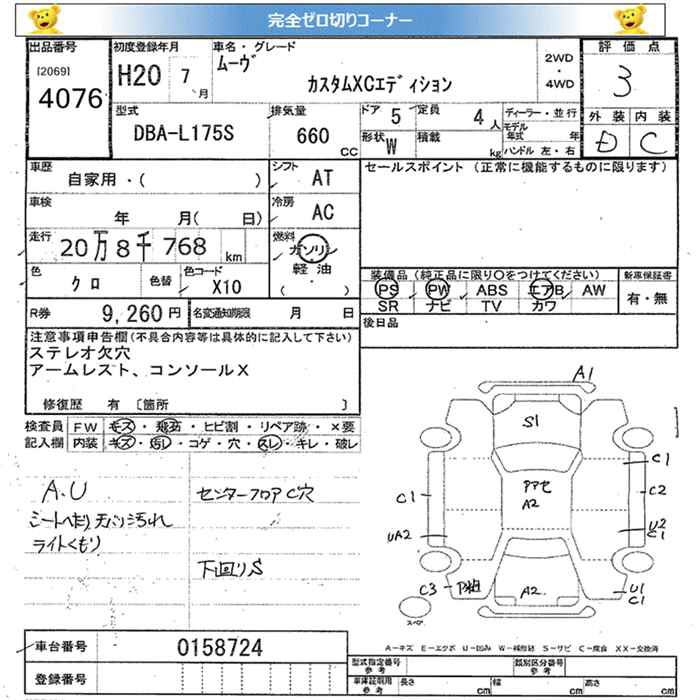 完全ゼロ切りコーナー
出品番号
[2069]
4076
初度登録年月
H20 7月
車名・グレード
ムーヴ
カスタムXCエディション
2WD
・
4WD
評価点
3
外装 内装
D C
型式
DBA-L175S
排気量
660 CC
ドア 5
定員 4人
形状 W
積載 kg
ディーラー・並行
モデル年式 年
ハンドル 左・右
車歴
自家用・( )
シフト
AT
車検
年 月( 日)
冷房
AC
走行
20万8千768 km
燃料
ガソリン
軽油
( )
色
クロ
色替
色コード
X10
R券 9,260円
名変通知期限 月 日
セールスポイント (正常に機能するものに限ります)
装備品 (純正品に限り○をつけてください)
PS PW ABS エアB AW
SR ナビ TV カワ
新車保証書
有・無
後日品
注意事項申告欄(不具合内容等は具体的に記入して下さい)
ステレオ欠穴
アームレスト、コンソールX
修復歴 有 〔箇所 〕
検査員 FW キズ・飛石・ヒビ割・リペア跡・×要
記入欄 内装 キズ・汚レ・コゲ・穴・スレ・キレ・破レ
A.U
シートへたり 天バリ汚れ
ライトくもり
センターフロアC穴
下回りS
A1
S1
C1
C1
C2
アアセ
A2
UA2
U2
C1
C3
A2
U1
C1
スペア
A－キズ E－エクボ U－凹み W－補修跡 S－サビ C－腐食 XX－交換済
車台番号 0158724
登録番号
型式指定番号
参考
類別区分番号
参考
車庫証明用
参考
長さ cm 幅 cm 高さ cm